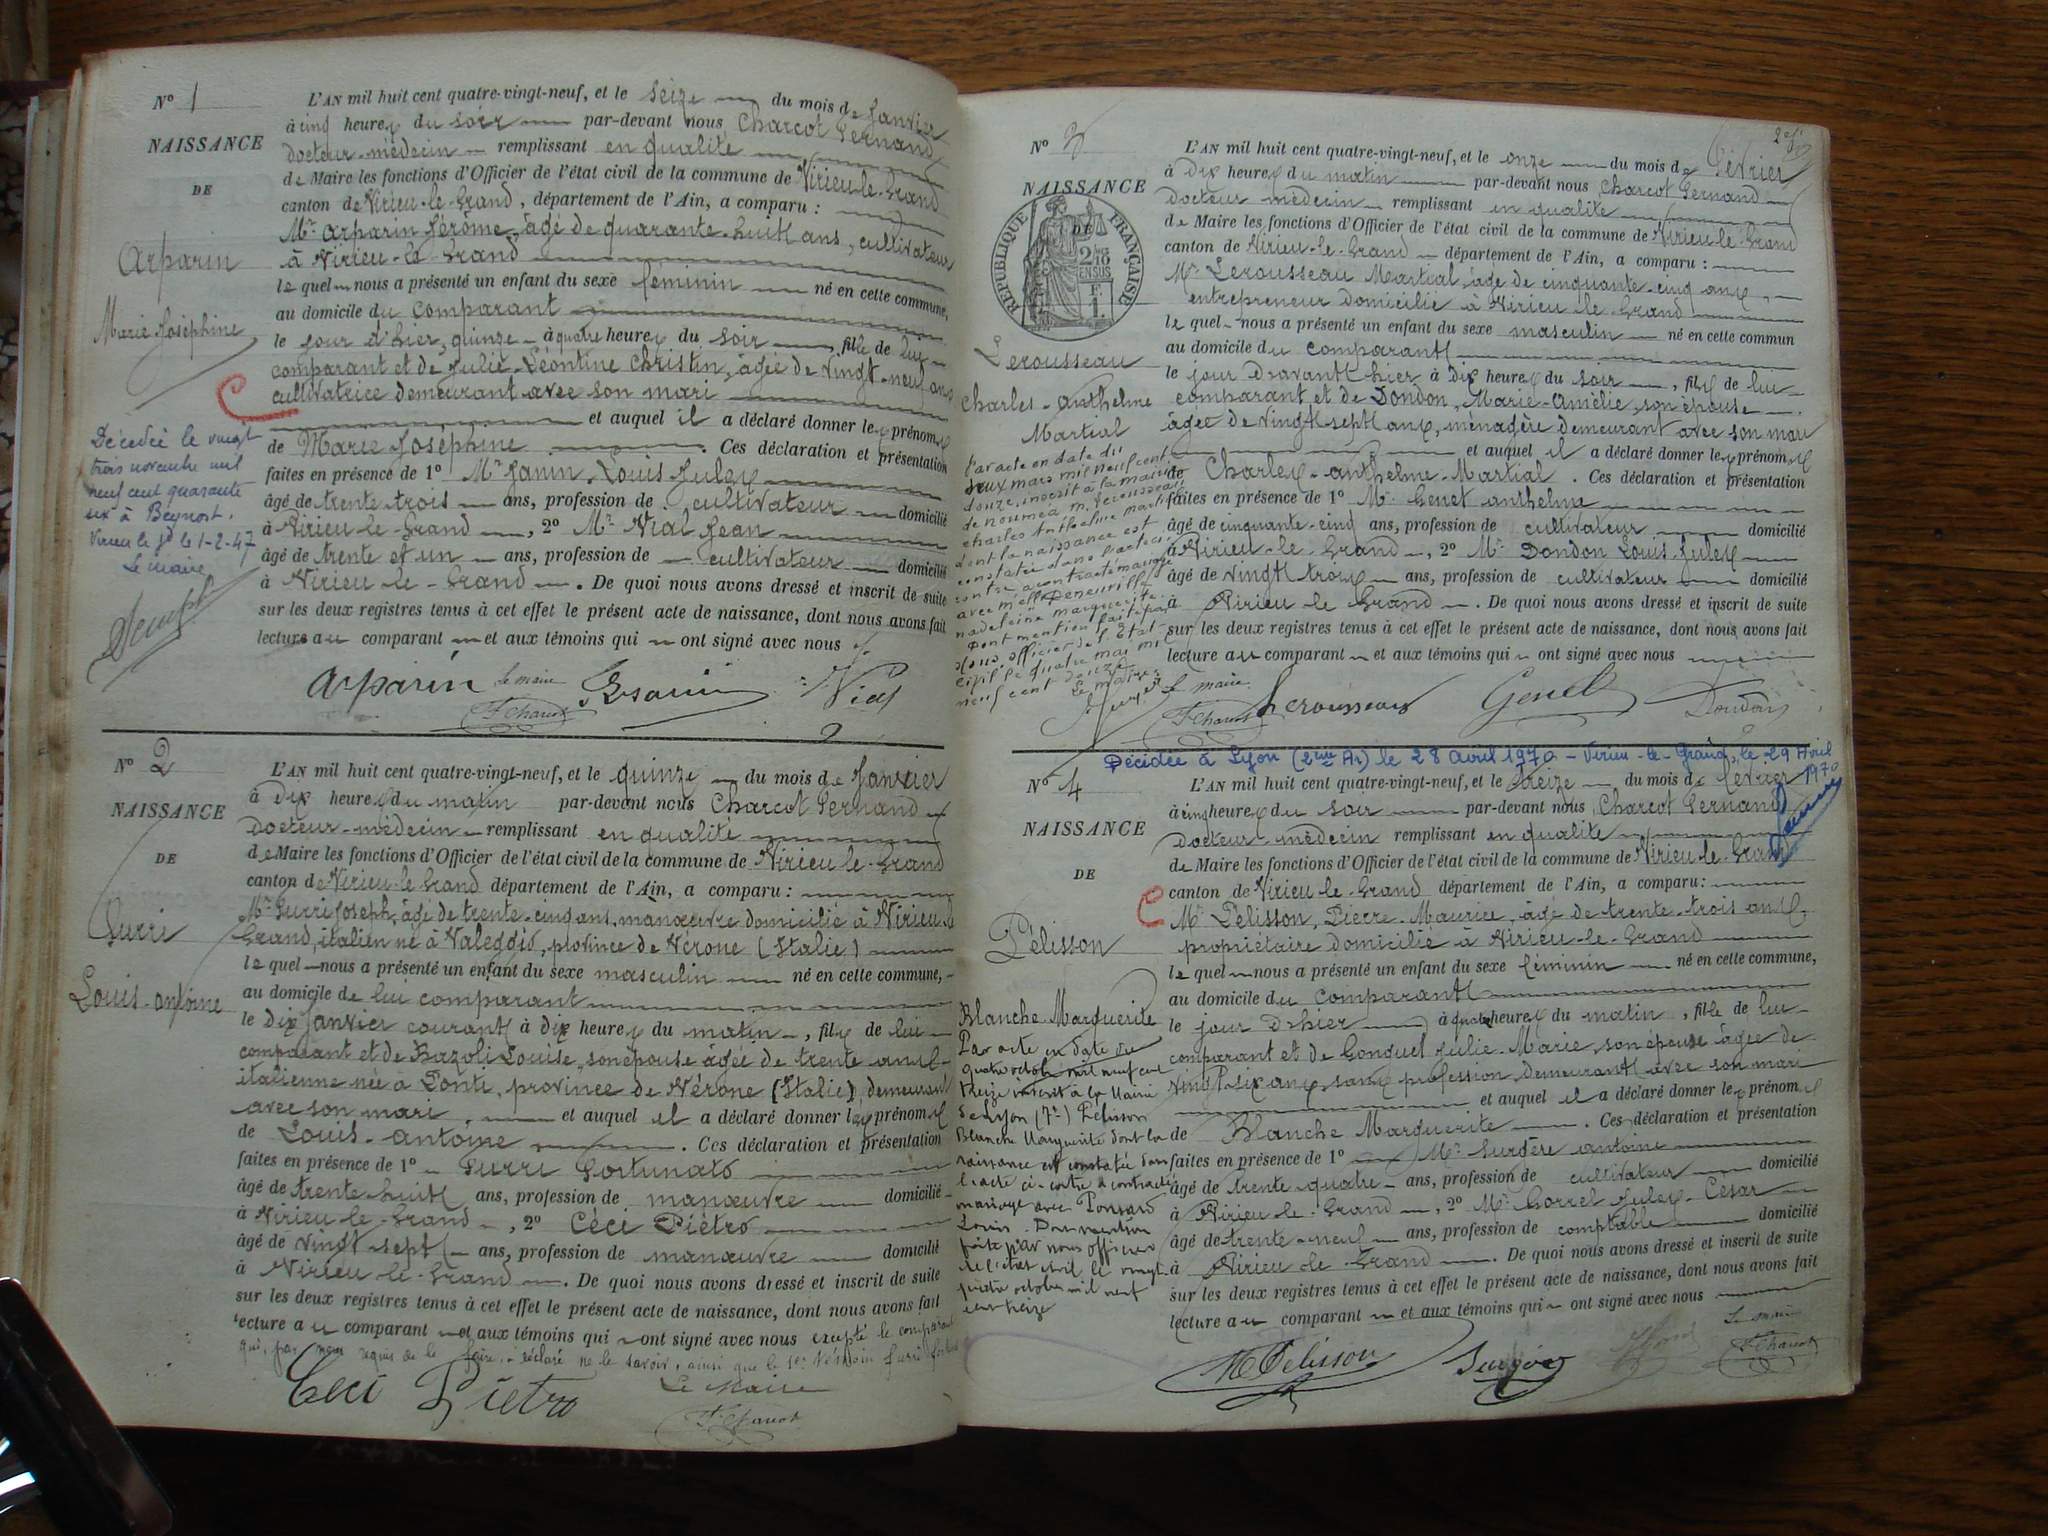 N° 1
NAISSANCE
DE
Arparin
Marie Joséphine
L'AN mil huit cent quatre-vingt-neuf, et le seize du mois de Janvier
à cinq heures du soir par-devant nous Charcot Fernand
docteur-médecin remplissant en qualité
de Maire les fonctions d'Officier de l'état civil de la commune de Virieu-le-Grand
canton de Virieu-le-Grand, département de l'Ain, a comparu :
Mr Arparin Jérôme, âgé de quarante-huit ans, cultivateur
à Virieu-le-Grand
lequel nous a présenté un enfant du sexe féminin né en cette commune,
au domicile du comparant
le jour d'hier, quinze à quatre heures du soir, fille de lui
comparant et de Julie-Léontine Christin, âgée de vingt-neuf ans
cultivatrice demeurant avec son mari
et auquel il a déclaré donner les prénoms
de Marie Joséphine. Ces déclaration et présentation
faites en présence de 1° Mr Janin Louis Jules
âgé de trente trois ans, profession de cultivateur domicilié
à Virieu-le-Grand, 2° Mr Vial Jean
âgé de trente et un ans, profession de cultivateur domicilié
à Virieu-le-Grand. De quoi nous avons dressé et inscrit de suite
sur les deux registres tenus à cet effet le présent acte de naissance, dont nous avons fait
lecture au comparant et aux témoins qui ont signé avec nous
Décédée le vingt
trois novembre mil
neuf cent quarante
six à Beynost.
Virieu le gd le 1-2-47
Le maire
Arparin Le maire Janin Vial
F. Charcot
N° 2
NAISSANCE
DE
Gurri
Louis-Antoine
L'AN mil huit cent quatre-vingt-neuf, et le quinze du mois de Janvier
à dix heures du matin par-devant nous Charcot Fernand
Docteur-médecin remplissant en qualité
de Maire les fonctions d'Officier de l'état civil de la commune de Virieu-le-Grand
canton de Virieu-le-Grand département de l'Ain, a comparu :
Mr Gurri Joseph, âgé de trente-cinq ans, manœuvre domicilié à Virieu-le
Grand, italien né à Valeggio, province de Vérone (Italie)
lequel nous a présenté un enfant du sexe masculin né en cette commune,
au domicile de lui comparant
le dix Janvier courant à dix heures du matin, fils de lui
comparant et de Bazoli Louise, son épouse âgée de trente ans
italienne née à Ponti, province de Vérone (Italie) demeurant
avec son mari, et auquel il a déclaré donner les prénoms
de Louis-Antoine. Ces déclaration et présentation
faites en présence de 1° Gurri Fortunato
âgé de trente huit ans, profession de manœuvre domicilié
à Virieu-le-Grand, 2° Céci Piétro
âgé de vingt sept ans, profession de manœuvre domicilié
à Virieu-le-Grand. De quoi nous avons dressé et inscrit de suite
sur les deux registres tenus à cet effet le présent acte de naissance, dont nous avons fait
lecture au comparant et aux témoins qui ont signé avec nous excepté le comparant
qui, par nous requis de le faire, a déclaré ne le savoir, ainsi que le 1er témoin Gurri
Ceci Piétro Le Maire
F. Charcot
N° 3
NAISSANCE
DE
RÉPUBLIQUE FRANÇAISE
Lerousseau
Charles-Anthelme
Martial
L'AN mil huit cent quatre-vingt-neuf, et le onze du mois de Février
à dix heures du matin par-devant nous Charcot Fernand
Docteur médecin remplissant en qualité
de Maire les fonctions d'Officier de l'état civil de la commune de Virieu-le-Grand
canton de Virieu-le-Grand département de l'Ain, a comparu :
Mr Lerousseau Martial, âgé de cinquante-cinq ans,
entrepreneur domicilié à Virieu le Grand
lequel nous a présenté un enfant du sexe masculin né en cette commun
au domicile du comparant
le jour d'avant hier à dix heures du soir, fils de lui
comparant et de Dondon, Marie-Amélie, son épouse
âgée de vingt sept ans, ménagère demeurant avec son mari
et auquel il a déclaré donner les prénoms
de Charles-Anthelme-Martial. Ces déclaration et présentation
faites en présence de 1° Mr Genet Anthelme
âgé de cinquante-cinq ans, profession de cultivateur domicilié
à Virieu-le-Grand, 2° Mr Dondon Louis-Jules
âgé de vingt trois ans, profession de cultivateur domicilié
à Virieu le Grand. De quoi nous avons dressé et inscrit de suite
sur les deux registres tenus à cet effet le présent acte de naissance, dont nous avons fait
lecture au comparant et aux témoins qui ont signé avec nous
Par acte en date du
deux mars mil neuf cent
douze, inscrit à la mairie
de nouméa m. Lerousseau
charles Anthelme martial
dont la naissance est
constatée dans l'acte ci-
contre a contracté mariage
avec melle
madeleine marguerite.
Dont mention faite par
nous officier de l'Etat-
civil le quatre mai mil
neuf cent douze
Le maire
Le maire Lerousseau Genet Dondon
F. Charcot
Décédée à Lyon (2ème Ar) le 28 avril 1970 - Virieu-le-Grand, le 29 Avril
1970
N° 4
NAISSANCE
DE
Pélisson
Blanche Marguerite
L'AN mil huit cent quatre-vingt-neuf, et le treize du mois de février
à cinq heures du soir par-devant nous Charcot Fernand
Docteur-médecin remplissant en qualité
de Maire les fonctions d'Officier de l'état civil de la commune de Virieu-le-Grand
canton de Virieu-le-Grand département de l'Ain, a comparu :
Mr Pélisson, Pierre-Maurice, âgé de trente-trois ans,
propriétaire domicilié à Virieu-le-Grand
lequel nous a présenté un enfant du sexe féminin né en cette commune,
au domicile du comparant
le jour d'hier à quatre heures du matin, fille de lui
comparant et de Gonguet Julie-Marie, son épouse âgée de
vingt-six ans, sans profession, demeurant avec son mari
et auquel il a déclaré donner les prénoms
de Blanche Marguerite. Ces déclaration et présentation
faites en présence de 1° Mr Surgère Antoine
âgé de trente-quatre ans, profession de cultivateur domicilié
à Virieu-le-Grand, 2° Mr Gorrel Jules-César
âgé de trente-neuf ans, profession de comptable domicilié
à Virieu le Grand. De quoi nous avons dressé et inscrit de suite
sur les deux registres tenus à cet effet le présent acte de naissance, dont nous avons fait
lecture au comparant et aux témoins qui ont signé avec nous
Par acte en date du
quatre octobre mil neuf cent
treize inscrit à la Mairie
de Lyon (7e) Pélisson
Blanche Marguerite dont la
naissance est constatée dans
l'acte ci-contre a contracté
mariage avec Ponsard
Louis. Dont mention
faite par nous officier
de l'état civil le vingt
quatre octobre mil neuf
cent treize
Le maire
M Pélisson Surgère F. Charcot